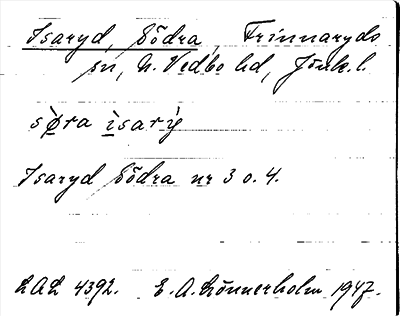 Isaryd, Södra, Frinnaryds
sn, N. Vedbo hd, Jönk. l.
sø̀ra ìsarỳ
Isaryd Södra nr 3 o. 4.
LAL 4392. E. A. Lönnerholm 1947.